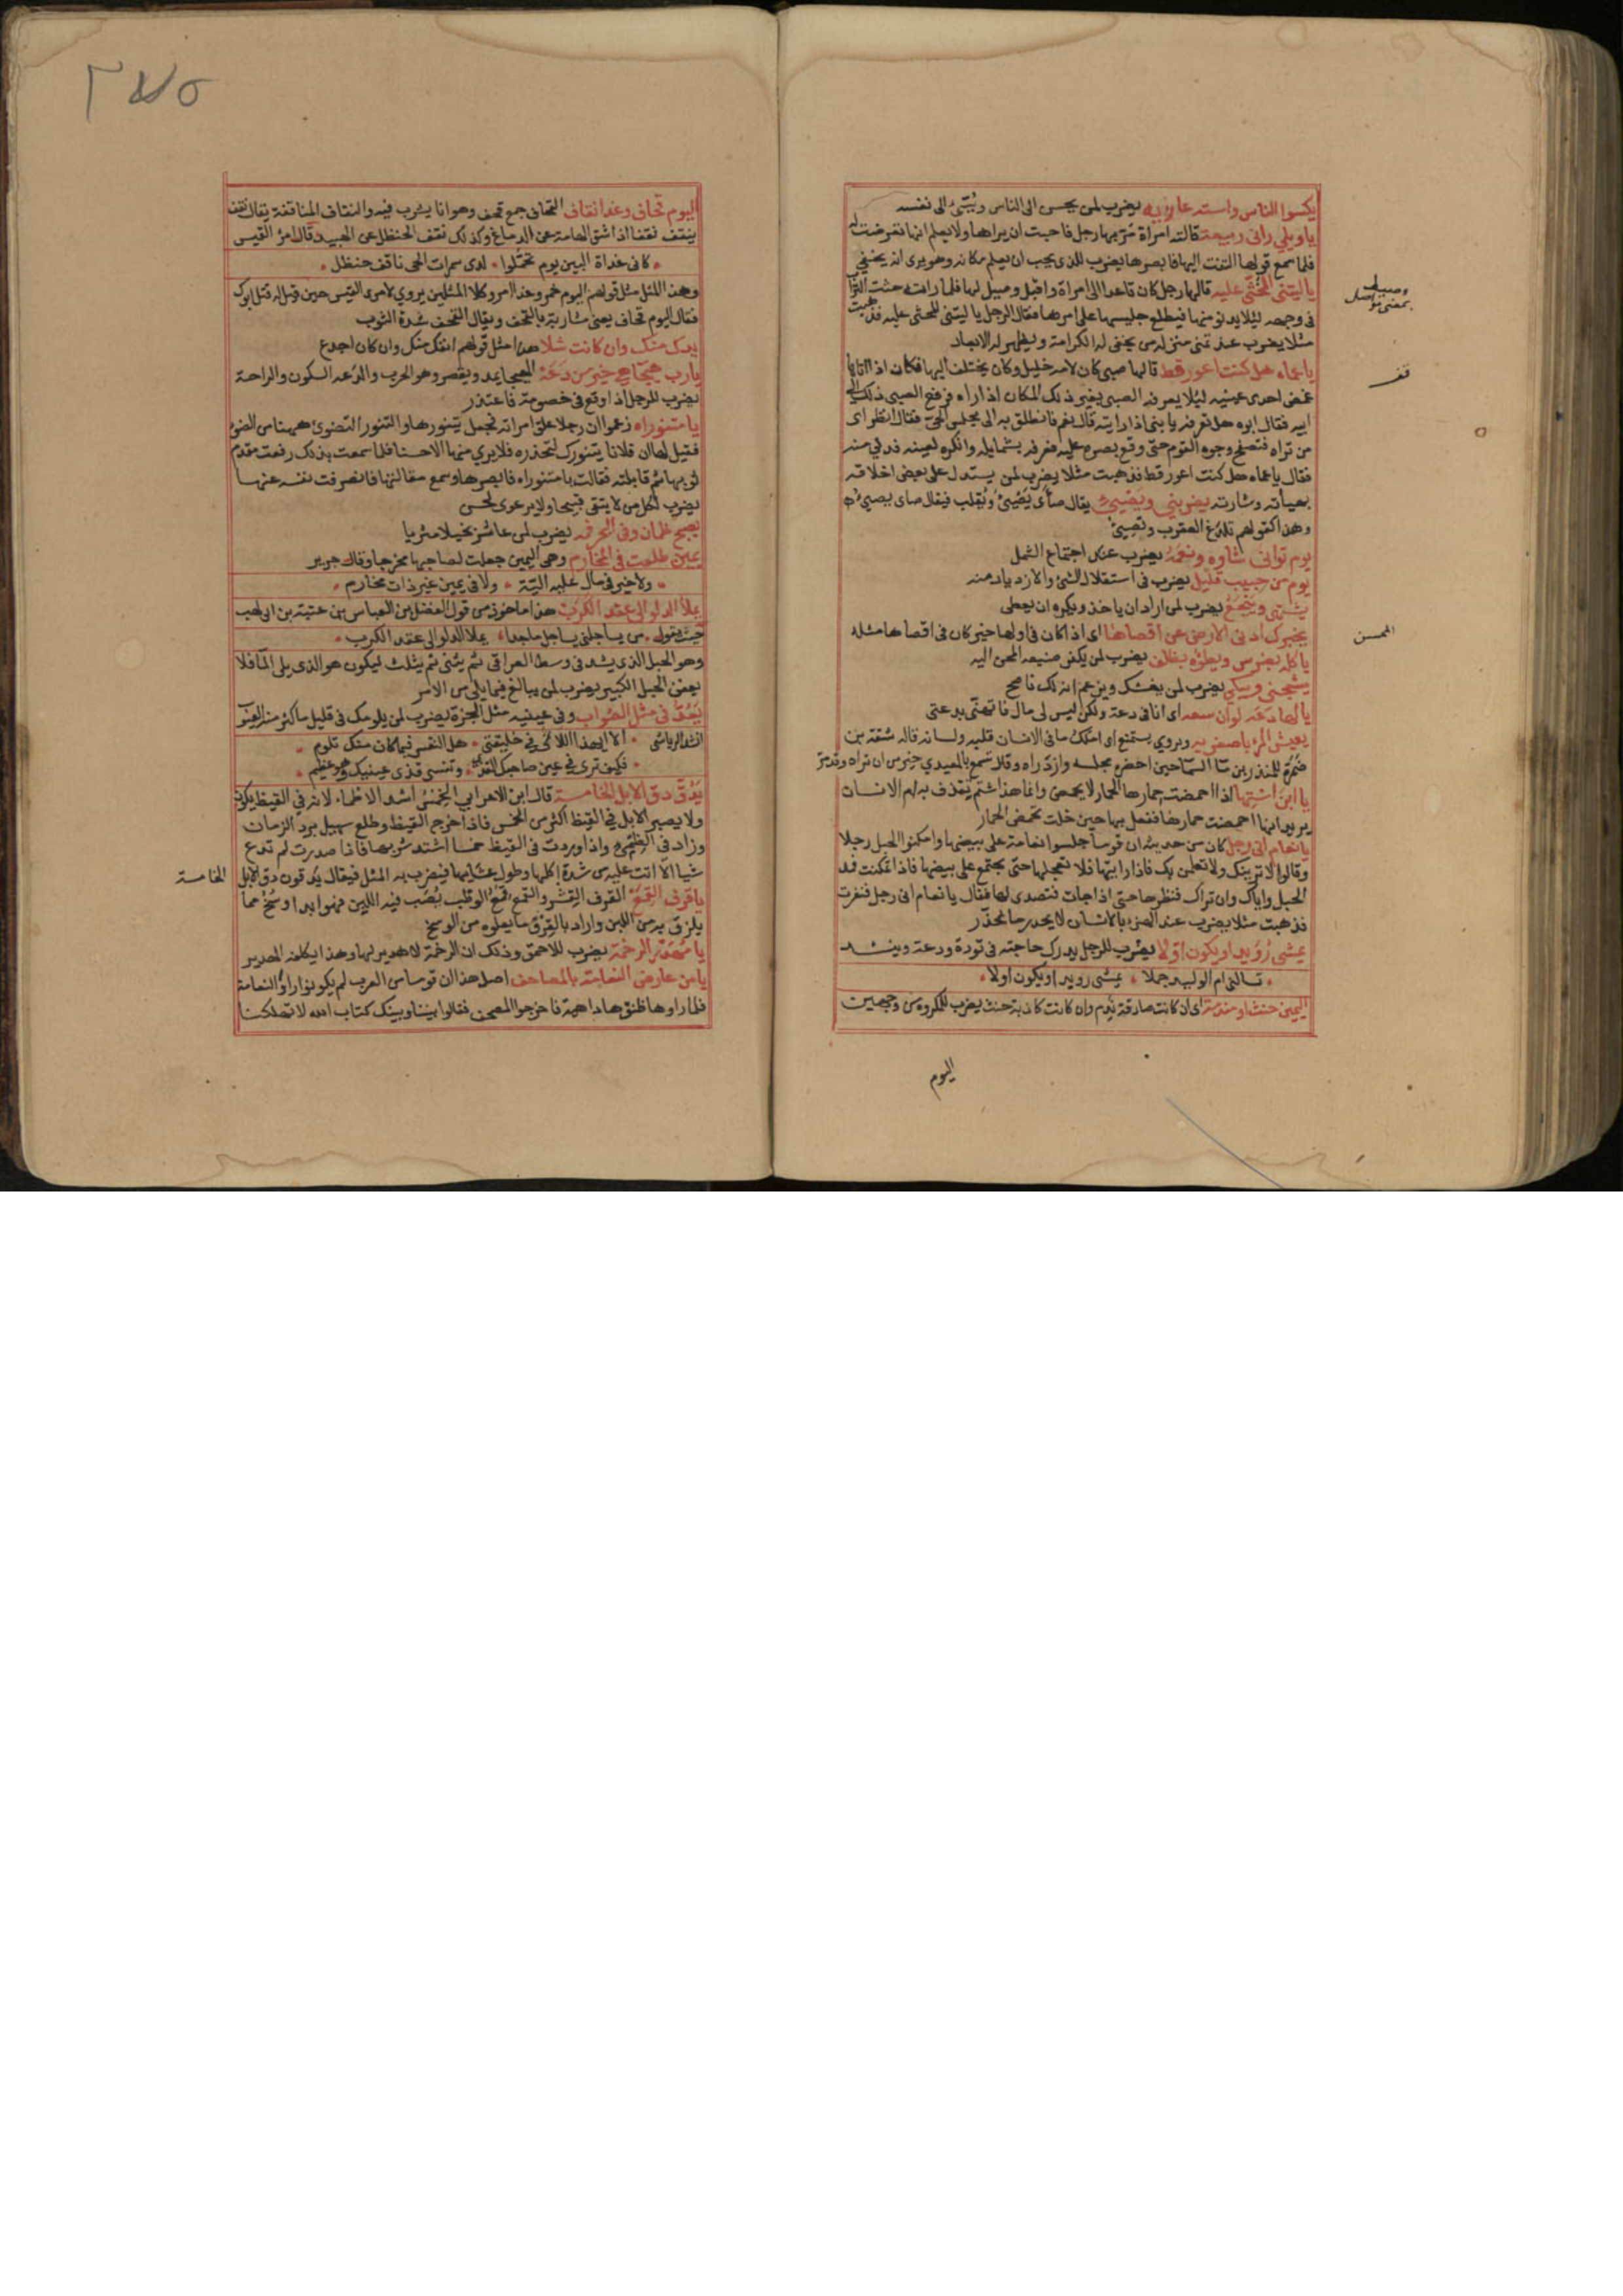 يكسوا الناس واسته عارية يضرب لمن يحسن الى الناس ويسئ الى نفسه
ياويلي رانى ربيعة قالته امراة مر بها رجل فاحبت ان يراها ولا يعلم انها تعرضت له
فلما سمع قولها التفت اليها فابصرها يضرب للذى يحب ان يعلم مكانه وهو يرى انه يختفى
ياليتنى المحثى عليه قالها رجل كان قاعدا الى امراة واقبل وصيل لها فلما راته حثت التراب
فى وجهه ليلا يدنو منها فيطلع جليسها على امرهما فقال الرجل ياليتنى المحثى عليه فذهبت
مثلا يضرب عند تمنى منزلة من يخفى له الكرامة ويظهر له الابعاد
ياعماه هل كنت اعور قط قالها صبى كان لامه خليل وكان يختلف اليها فكان اذا اتاها
غمض احدى عينيه ليلا يعرفه الصبى بغير ذلك المكان اذا راه فرفع الصبى ذلك الى
ابيه فقال ابوه هل تعرفه يابنى اذا رايته قال نعم فانطلق به الى مجلس الحى فقال انظر اى
من تراه فتصفح وجوه القوم حتى وقع بصره عليه فعرفه بشمايله وانكره لعينه فدنى منه
فقال ياعماه هل كنت اعور قط فذهبت مثلا يضرب لمن يستدل على بعض اخلاقه
بهيأته وشارته يضربنى ويصيئ يقال صأى يصيئ ويقلب فيقال صاى يصيئ
وهذا كقولهم تلدغ العقرب وتصيئ
يوم توافى شاوه ونعمه يضرب عند اجتماع الشمل
يوم من حبيب قليل يضرب فى استقلال الشئ والازدياد منه
يشتهى ويجيع يضرب لمن اراد ان ياخذ ويكره ان يعطى
يخبرك ادنى الارض عن اقصاها اى اذا كان فى اولها خير كان فى اقصاها مثله
ياكله بضرس ويطؤه بظلف يضرب لمن يكفر صنيعه المحسن اليه
يشجنى ويبكى يضرب لمن يغشك ويزعم انه لك ناصح
يالها دعه لو ان سعه اى انا فى دعة ولكن ليس لى مال فاتهنى بدعتى
يعيش المرء باصغريه ويروي يستمتع اى املك ما فى الانسان قلبه ولسانه قاله شقة بن
ضمرة للمنذر بن ما السما حين احضره مجلسه وازدراه وقال تسمع بالمعيدي خير من ان تراه وقد مر
يا ابن استها اذا احمضت حمارها الحمار لا يحمض وانما هذا شتم تقذف به ام الانسان
يريد انها احمضت حمارها ففعل بها حين خلت تحمض الحمار
يانعام انى رجل كان من حديثه ان قوما جلسوا نعامة على بيضها وامكنوا الحبل رجلا
وقالوا لا ترينك ولا تعلمن بك فاذا رايتها فلا تعجلها حتى تجتمع على بيضها فاذا تمكنت فمد
الحبل واياك وان تراك فنظرها حتى اذا جات فتصدى لها فقال يانعام انى رجل فنفرت
فذهبت مثلا يضرب عند الهزء بالانسان لا يحذر ما يحذر
يمشى رويدا ويكون اولا يضرب للرجل يدرك حاجته فى تودة ودعة وينشد
تسالنى ام الوليد جملا يمشى رويدا ويكون اولا
اليمين حنث او مندمة اى ان كانت صادقة ندم وان كانت كاذبة حنث يضرب للمكروه من وجهين
اليوم
وصيل
بمعنى تواصل
قف
المحسن
٢٧٥
اليوم قحاف وغدا نقاف القحاف جمع قحف وهو انا يشرب فيه والنقاف المناقفة يقال نقف
ينقف نقفا اذا شق الهامة عن الدماغ وكذلك نقف الحنظل عن الهبيد وقال امرؤ القيس
كانى غداة البين يوم تحملوا لدى سمرات الحى ناقف حنظل
وهذا المثل مثل قولهم اليوم خمر وغدا امر وكلا المثلين يروي لامرئ القيس حين قيل له قتل ابوك
فقال اليوم قحاف يعنى مشاربة بالقحف ويقال القحف شدة الشرب
يدك منك وان كانت شلا هذا مثل قولهم انفك منك وان كان اجدع
يارب هيجا هي خير من دعة الهيجا يمد ويقصر وهو الحرب والدعه السكون والراحة
يضرب للرجل اذا وقع فى خصومة فاعتذر
يا متنوراه زعموا ان رجلا علق امراته فجعل يتنورها والتنور التضوئ ههنا من الضوء
فقيل لها ان فلانا يتنورك لتحذره فلا يرى منها الا حسنا فلما سمعت بذلك رفعت مقدم
ثوبها ثم قابلته فقالت يا متنوراه فابصرها وسمع مقالتها فانصرفت نفسه عنها
يضرب لكل من لا يتقى قبيحا ولا يرعوى لحسن
يصبح ظمان وفى البحر فمه يضرب لمن عاشر بخيلا مثريا
يمين طلعت فى المخارم وهى اليمين جعلت لصاحبها مخرجا وقال جرير
ولا خير فى مال عليه الية ولا فى يمين غير ذات مخارم
يملأ الدلو الى عقد الكرب هذا ماخوذ من قول الفضل بن العباس بن عتبة بن ابى لهب
حيث يقول من يساجلنى يساجل ماجدا يملا الدلو الى عقد الكرب
وهو الحبل الذى يشد فى وسط العراقى ثم يثنى ثم يثلث ليكون هو الذى يلى الما فلا
يعفن الحبل الكبير يضرب لمن يبالغ فيما يلى من الامر
يدق فى مثل الصواب وفى عينيه مثل الجرة يضرب لمن يلومك فى قليل ما كثر منه العيوب
انشد الرياشى الا ايهذا اللائمى فى خليقتى هل النفس فيما كان منك تلوم
فكيف ترى فى عين صاحبك القذى وتنسى قذى عينيك وهو عظيم
يدق دق الابل الخامسة قال ابن الاعرابي الخمس اشد الاظماء لانه فى القيظ يكون
ولا يصبر الابل فى القيظ اكثر من الخمس فاذا خرج القيظ وطلع سهيل برد الزمان
وزاد فى الظمئ واذا وردت فى القيظ خمسا اشتد شربها فاذا صدرت لم تدع
شيا الا اتت عليه من شدة اكلها وطول عشايها فيضرب به المثل فيقال يدقون دق الابل
الخامسة
ياقرف القمع القرف القشر والقمع قمع الوطب يصب فيه اللبن فهو ابدا وسخ مما
يلزق به من اللبن واراد بالقرف ما يعلوه من الوسخ
يا مهدر الرخمة يضرب للاحمق وذلك ان الرخمة لا هدير لها وهذا يكلفه الهدير
يا من عارض النعامة بالمصاحف اصل هذا ان قوما من العرب لم يكونوا راوا النعامة
فلما راوها ظنوها داهية فاخرجوا المصحف فقالوا بيننا وبينك كتاب الله لا تهلكنا